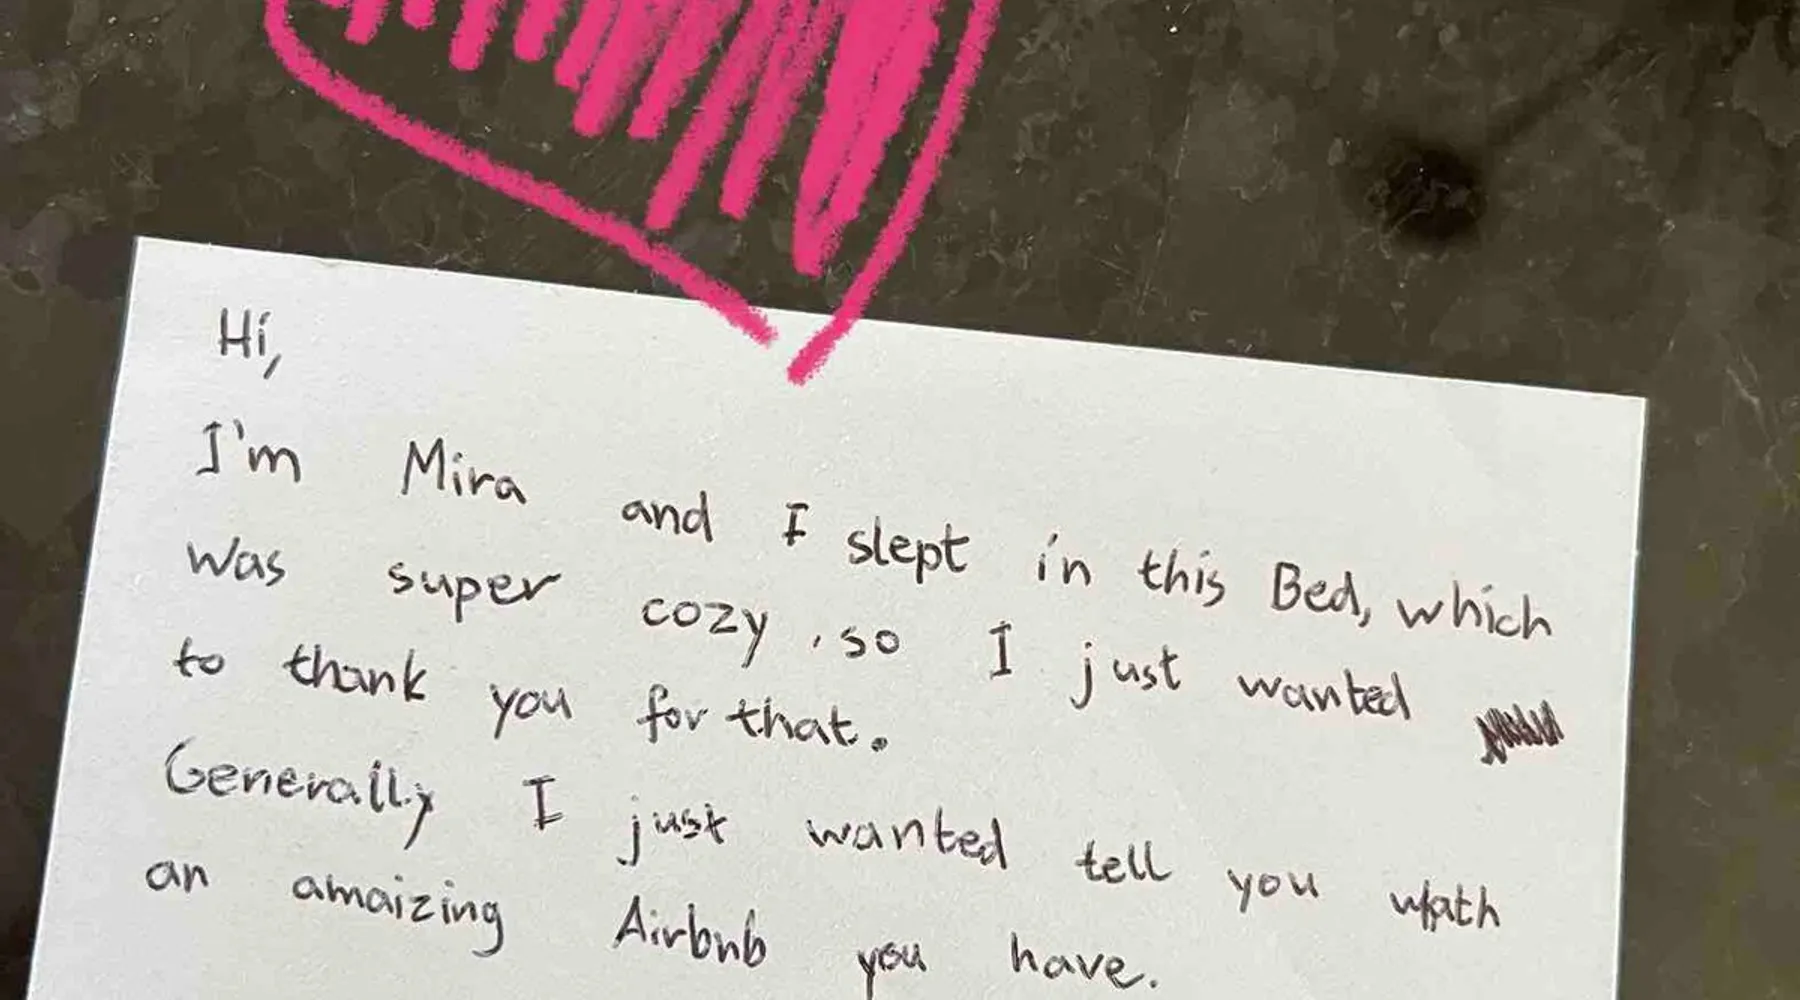 Hi,
I'm Mira and I slept in this Bed, which
was super cozy, so I just wanted
to thank you for that.
Generally I just wanted tell you wath
an amaizing Airbnb you have.